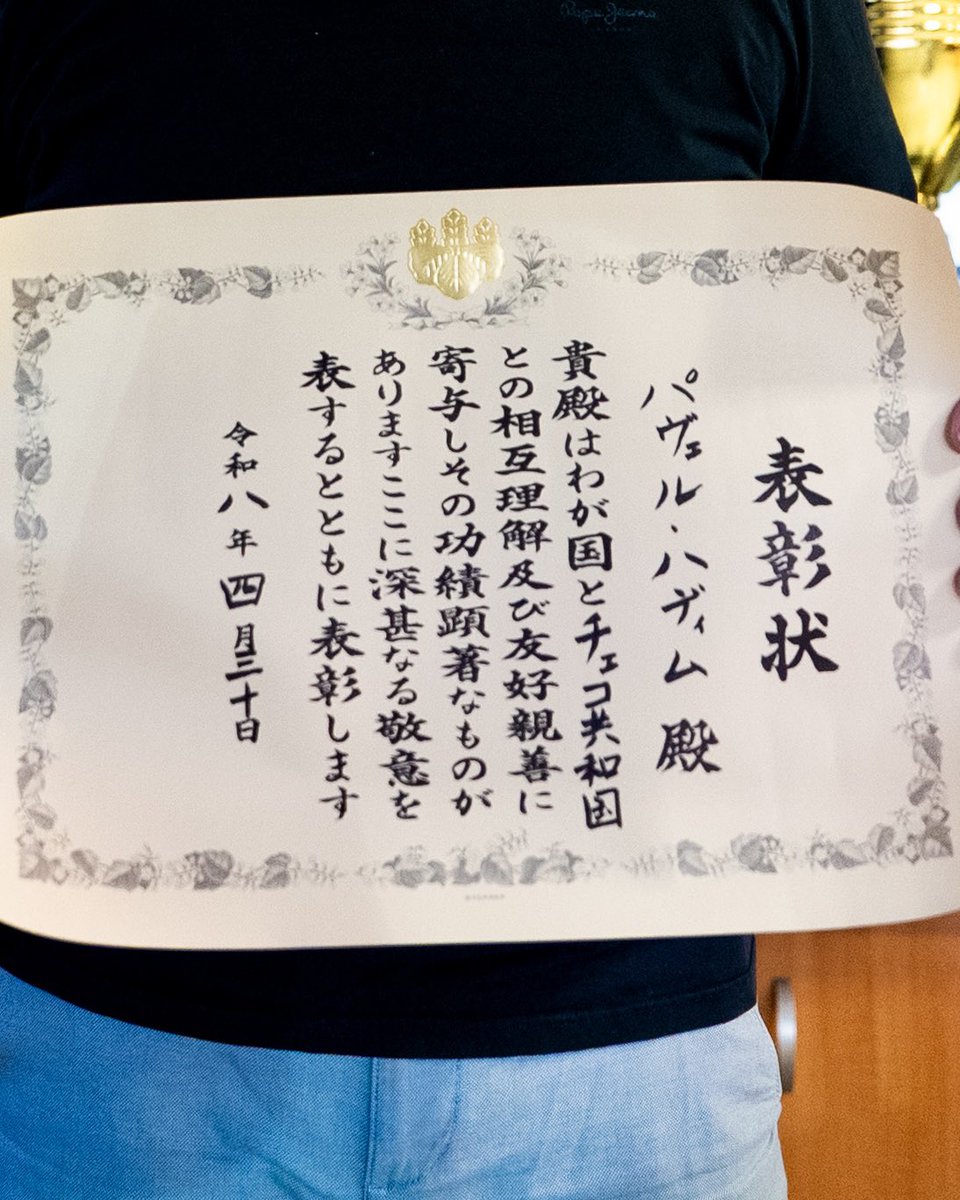 Pepe Jeans
表彰状
パヴェル・ハヴィム 殿
貴殿はわが国とチェコ共和国
との相互理解及び友好親善に
寄与しその功績顕著なものが
ありますここに深甚なる敬意を
表するとともに表彰します
令和八年四月三十日